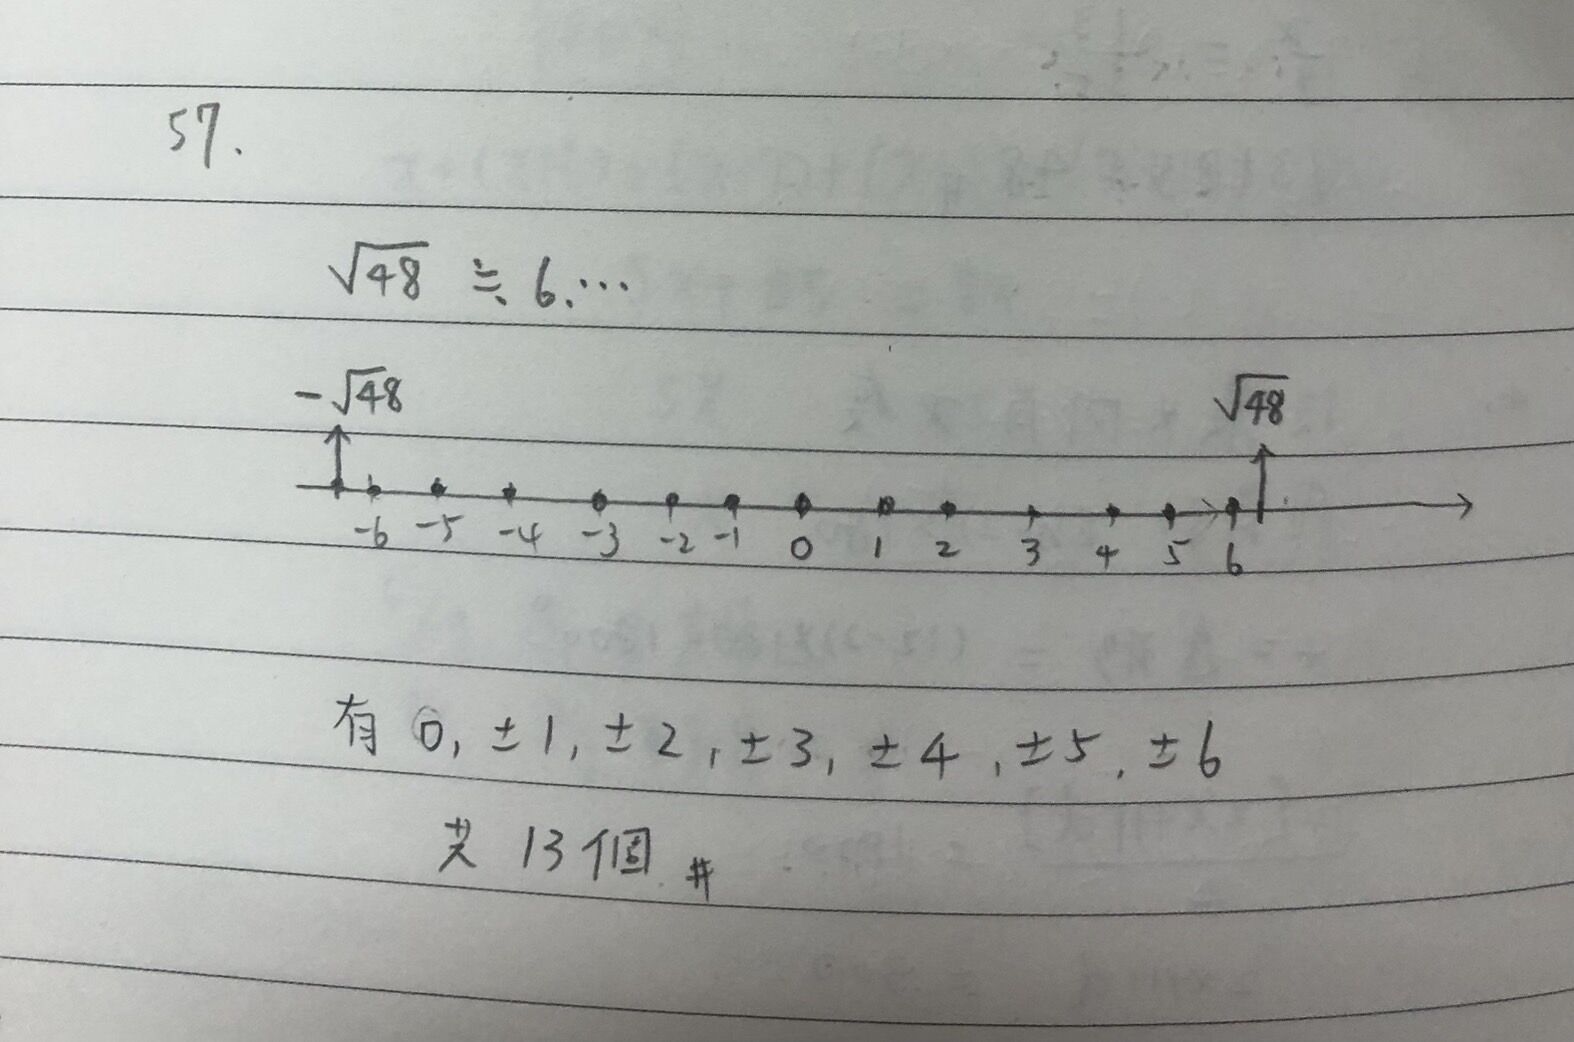 57.
√48 ≒ 6.…
-√48 √48
-6 -5 -4 -3 -2 -1 0 1 2 3 4 5 6
有 0, ±1, ±2, ±3, ±4, ±5, ±6
共 13個 #